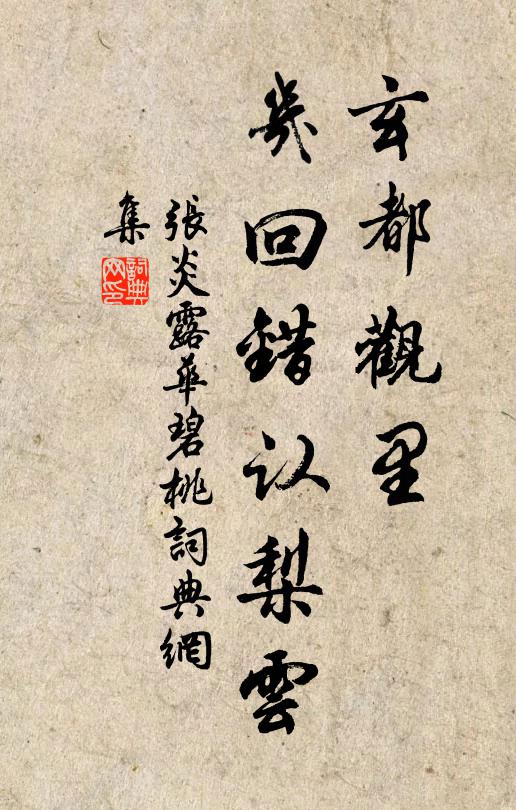 玄都觀里
幾回錯认梨雲
張炎露華碧桃詞典網
集
詞典
网印